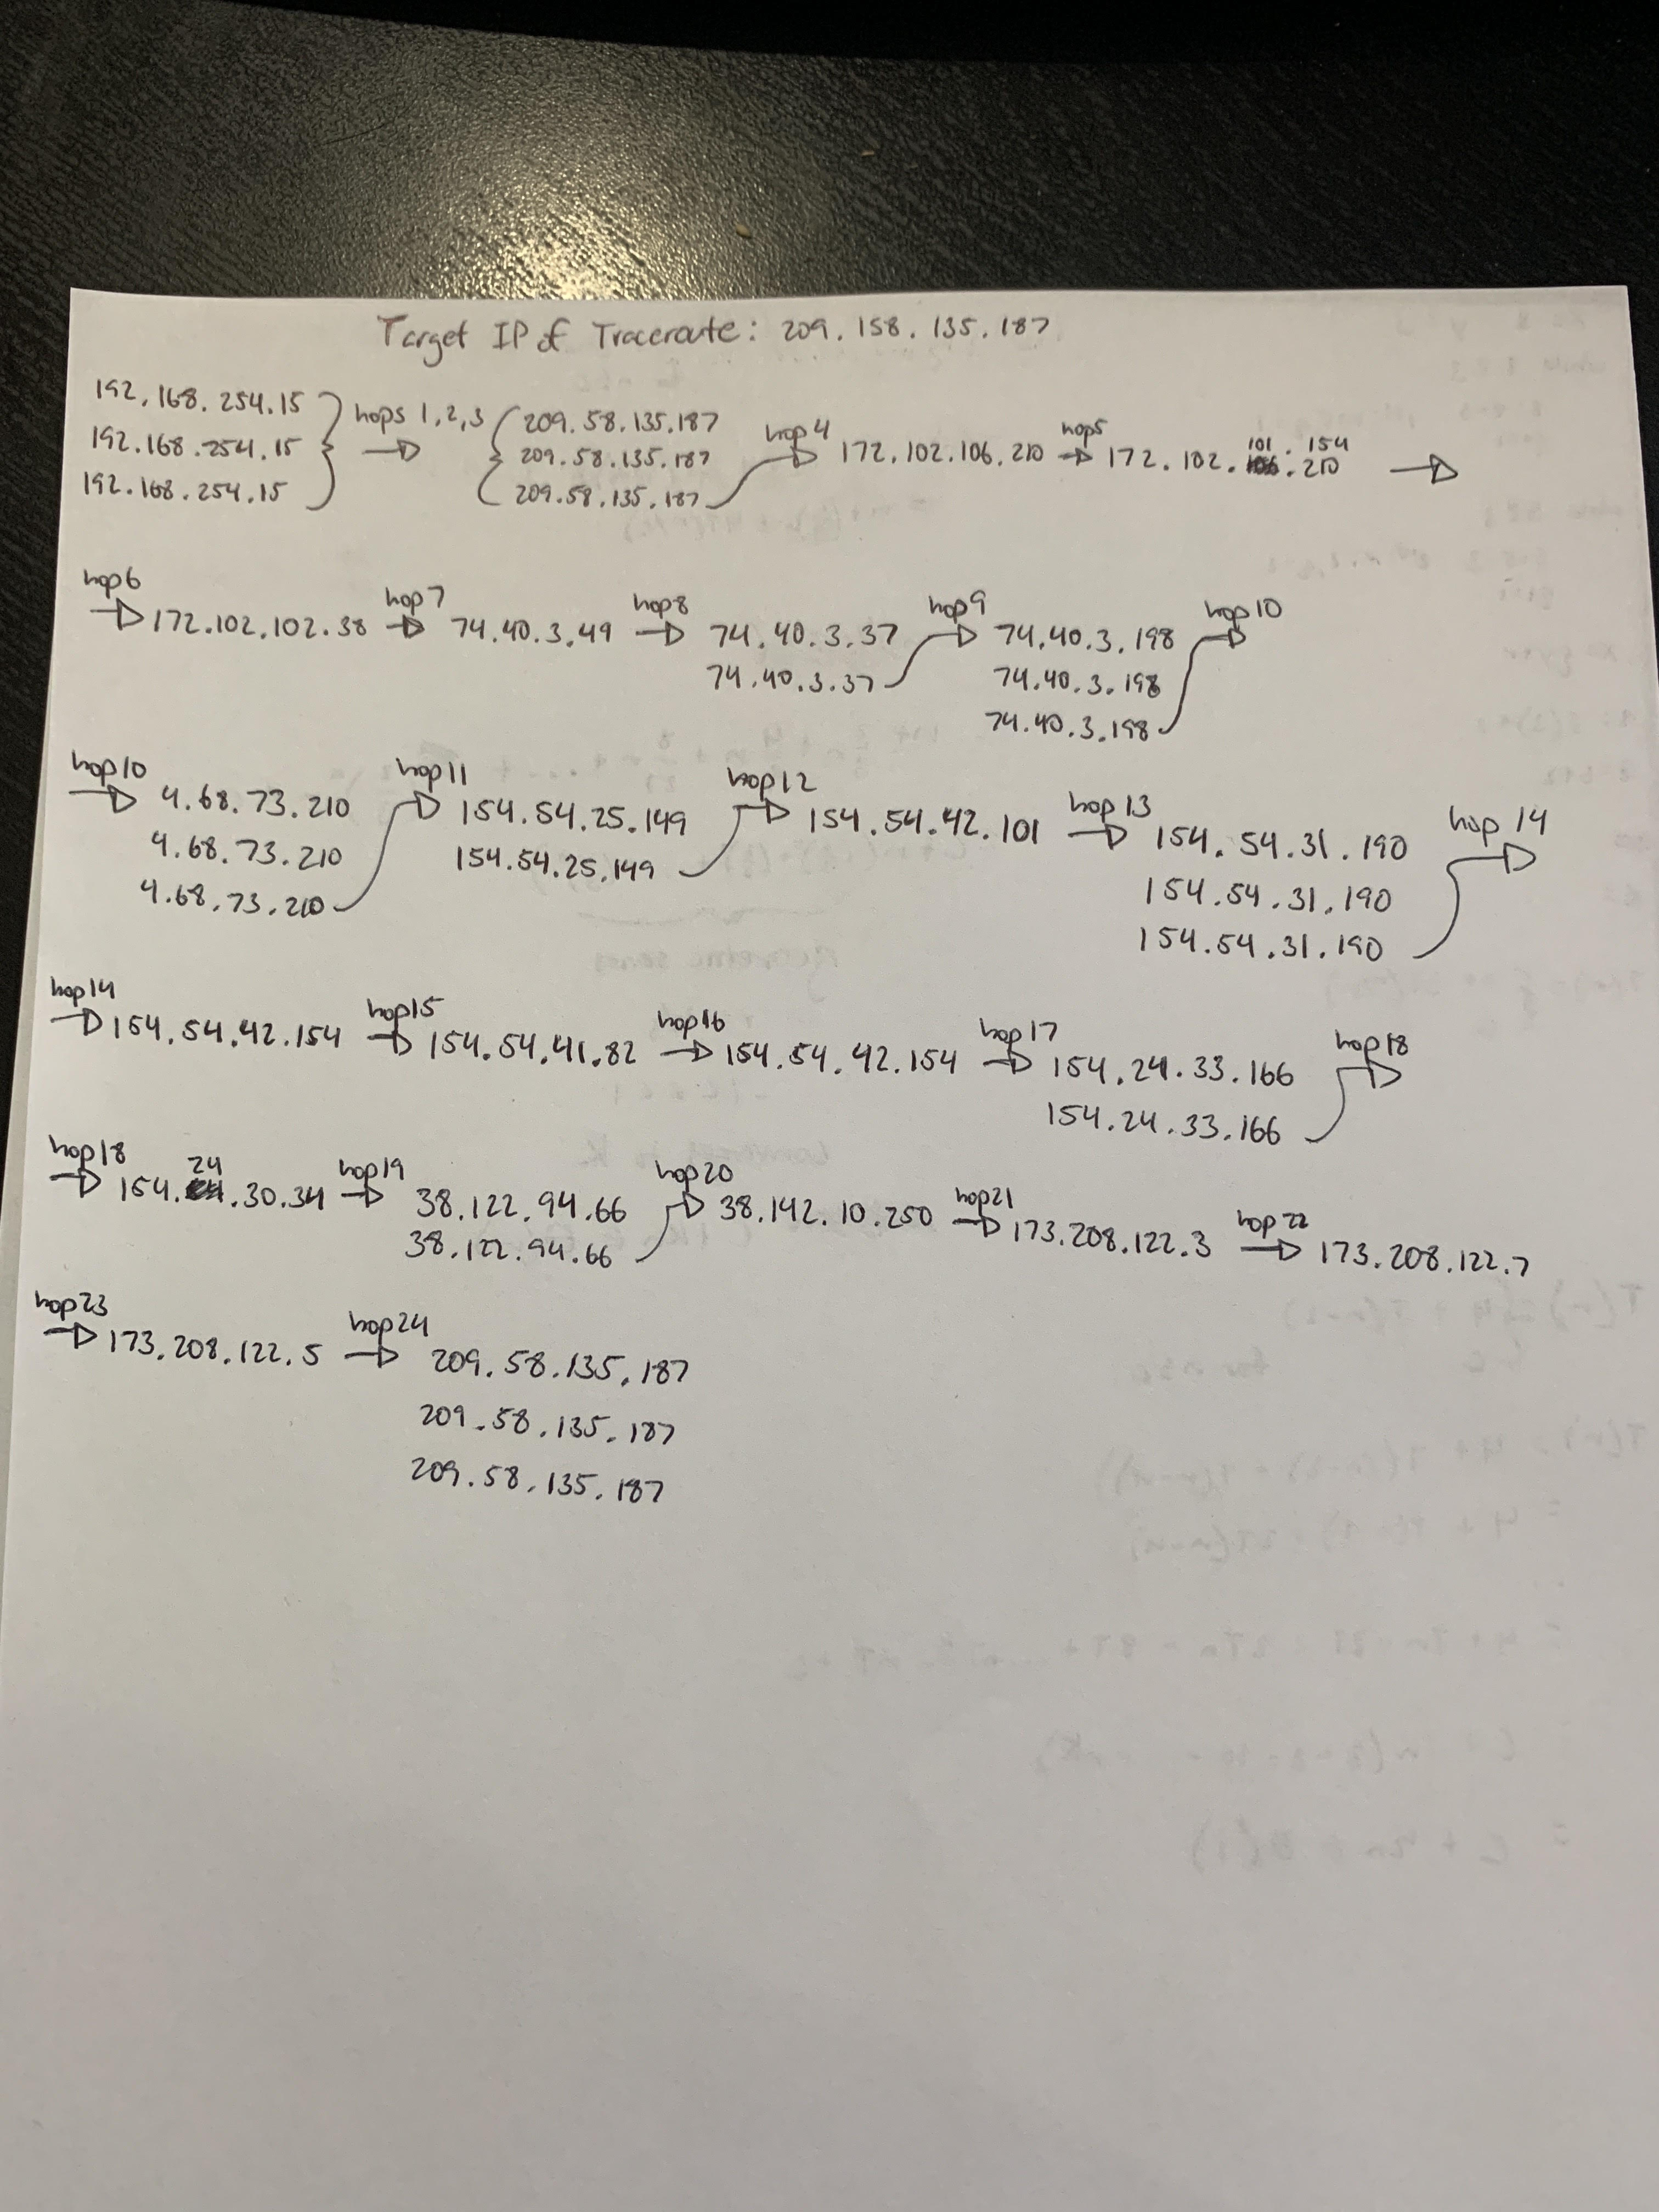 Target IP of Traceroute: 209.158.135.187
192.168.254.15
192.168.254.15
192.168.254.15
hops 1,2,3
209.58.135.187
209.58.135.187
209.58.135.187
hop4 172.102.106.210 hop5 172.102.101.154 210
hop6 172.102.102.38 hop7 74.40.3.49 hop8 74.40.3.37 hop9 74.40.3.198 hop10
74.40.3.37 74.40.3.198
74.40.3.198
hop10 4.68.73.210 hop11 154.54.25.149 hop12 154.54.42.101 hop13 154.54.31.190 hop 14
4.68.73.210 154.54.25.149 154.54.31.190
4.68.73.210 154.54.31.190
hop14 154.54.42.154 hop15 154.54.41.82 hop16 154.54.42.154 hop17 154.24.33.166 hop18
154.24.33.166
hop18 154.24.30.34 hop19 38.122.94.66 hop20 38.142.10.250 hop21 173.208.122.3 hop22 173.208.122.7
38.122.94.66
hop23 173.208.122.5 hop24 209.58.135.187
209.58.135.187
209.58.135.187